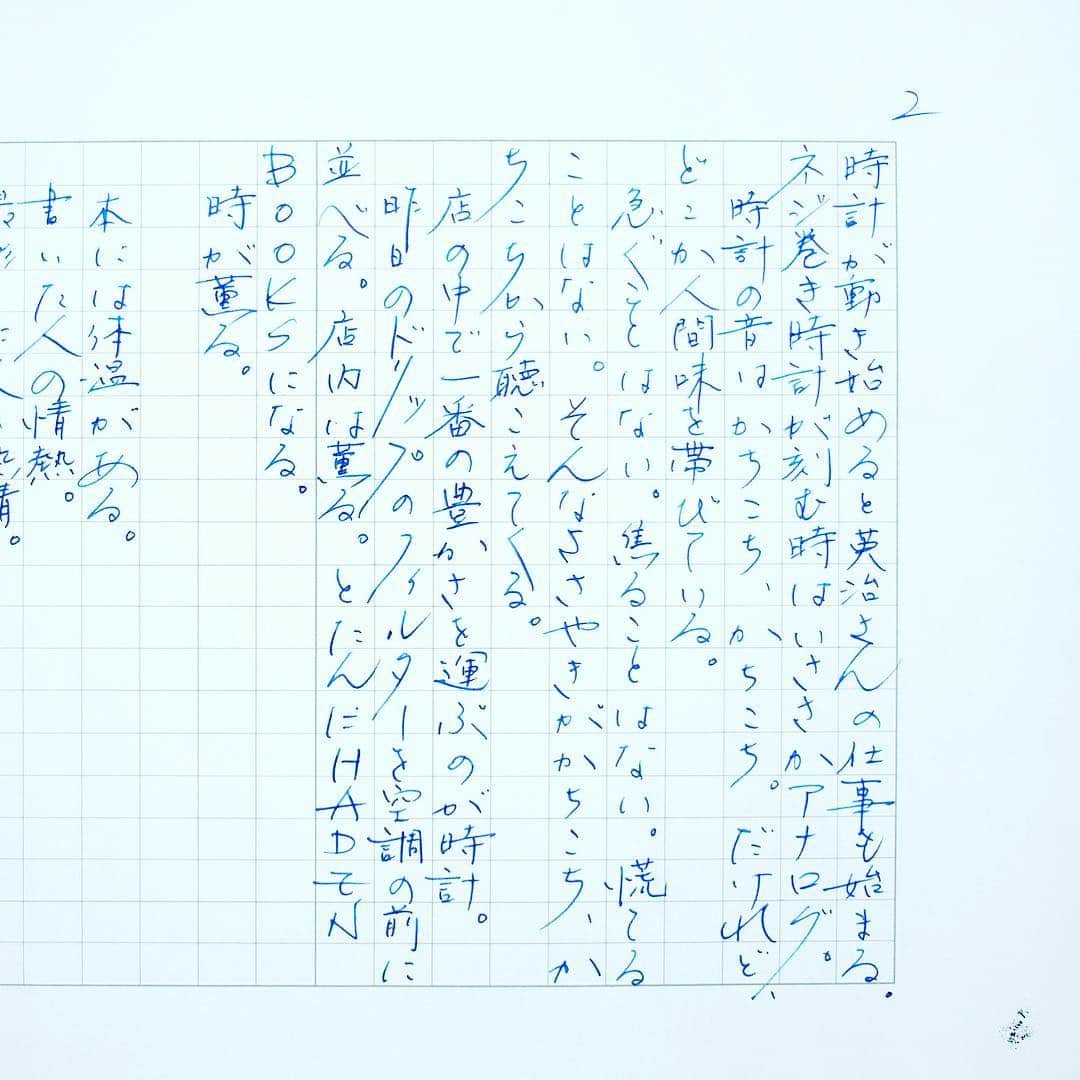 2
時計が動き始めると英治さんの仕事も始まる。
ネジ巻き時計が刻む時はいささかアナログ。
時計の音はかちこち、かちこち。だけれど、
どこか人間味を帯びている。
急ぐことはない。焦ることはない。慌てる
ことはない。そんなささやきがかちこち、か
ちこちから聴こえてくる。
店の中で一番の豊かさを運ぶのが時計。
昨日のドリップのフィルターを空調の前に
並べる。店内は薫る。とたんにHADEN
BOOKSになる。
時が薫る。
本には体温がある。
書いた人の情熱。